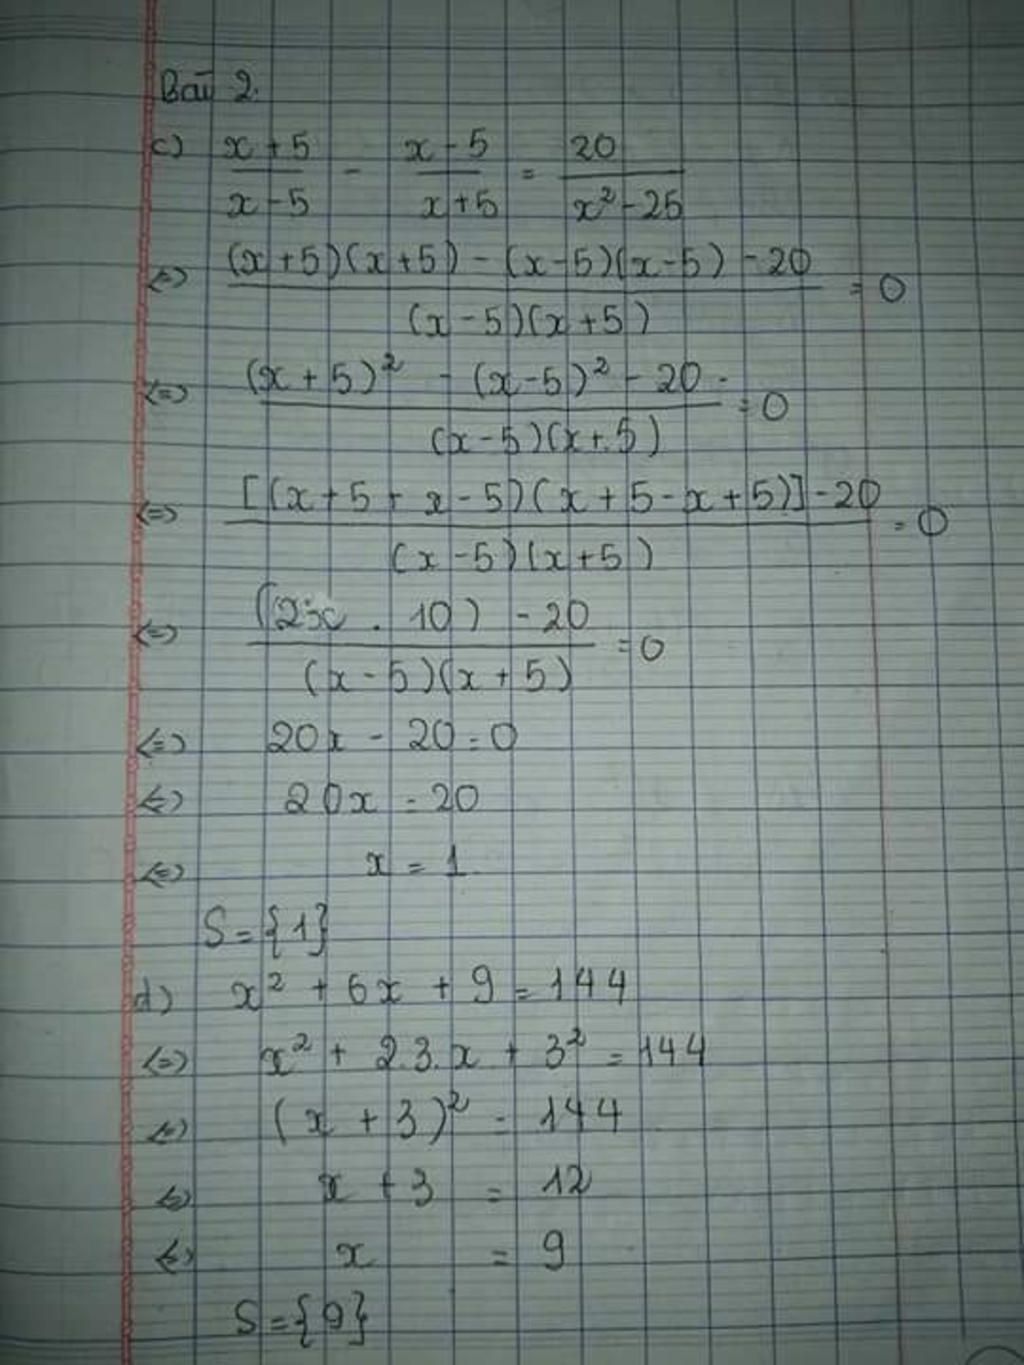 Bài 2.
c) x+5/x-5 - x-5/x+5 = 20/x²-25
<=> (x+5)(x+5) - (x-5)(x-5) - 20/(x-5)(x+5) = 0
<=> (x+5)² - (x-5)² - 20/(x-5)(x+5) = 0
<=> [(x+5+x-5)(x+5-x+5)] - 20/(x-5)(x+5) = 0
<=> (2x . 10) - 20/(x-5)(x+5) = 0
<=> 20x - 20 = 0
<=> 20x = 20
<=> x = 1
S = {1}
d) x² + 6x + 9 = 144
<=> x² + 2.3.x + 3² = 144
<=> (x + 3)² = 144
<=> x + 3 = 12
<=> x = 9
S = {9}